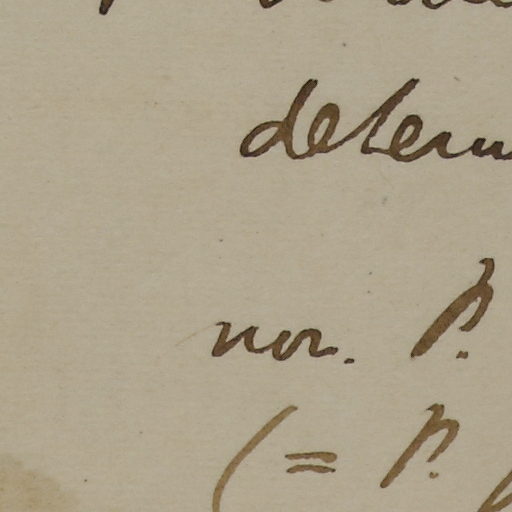 determ
nov. P.
(= P.